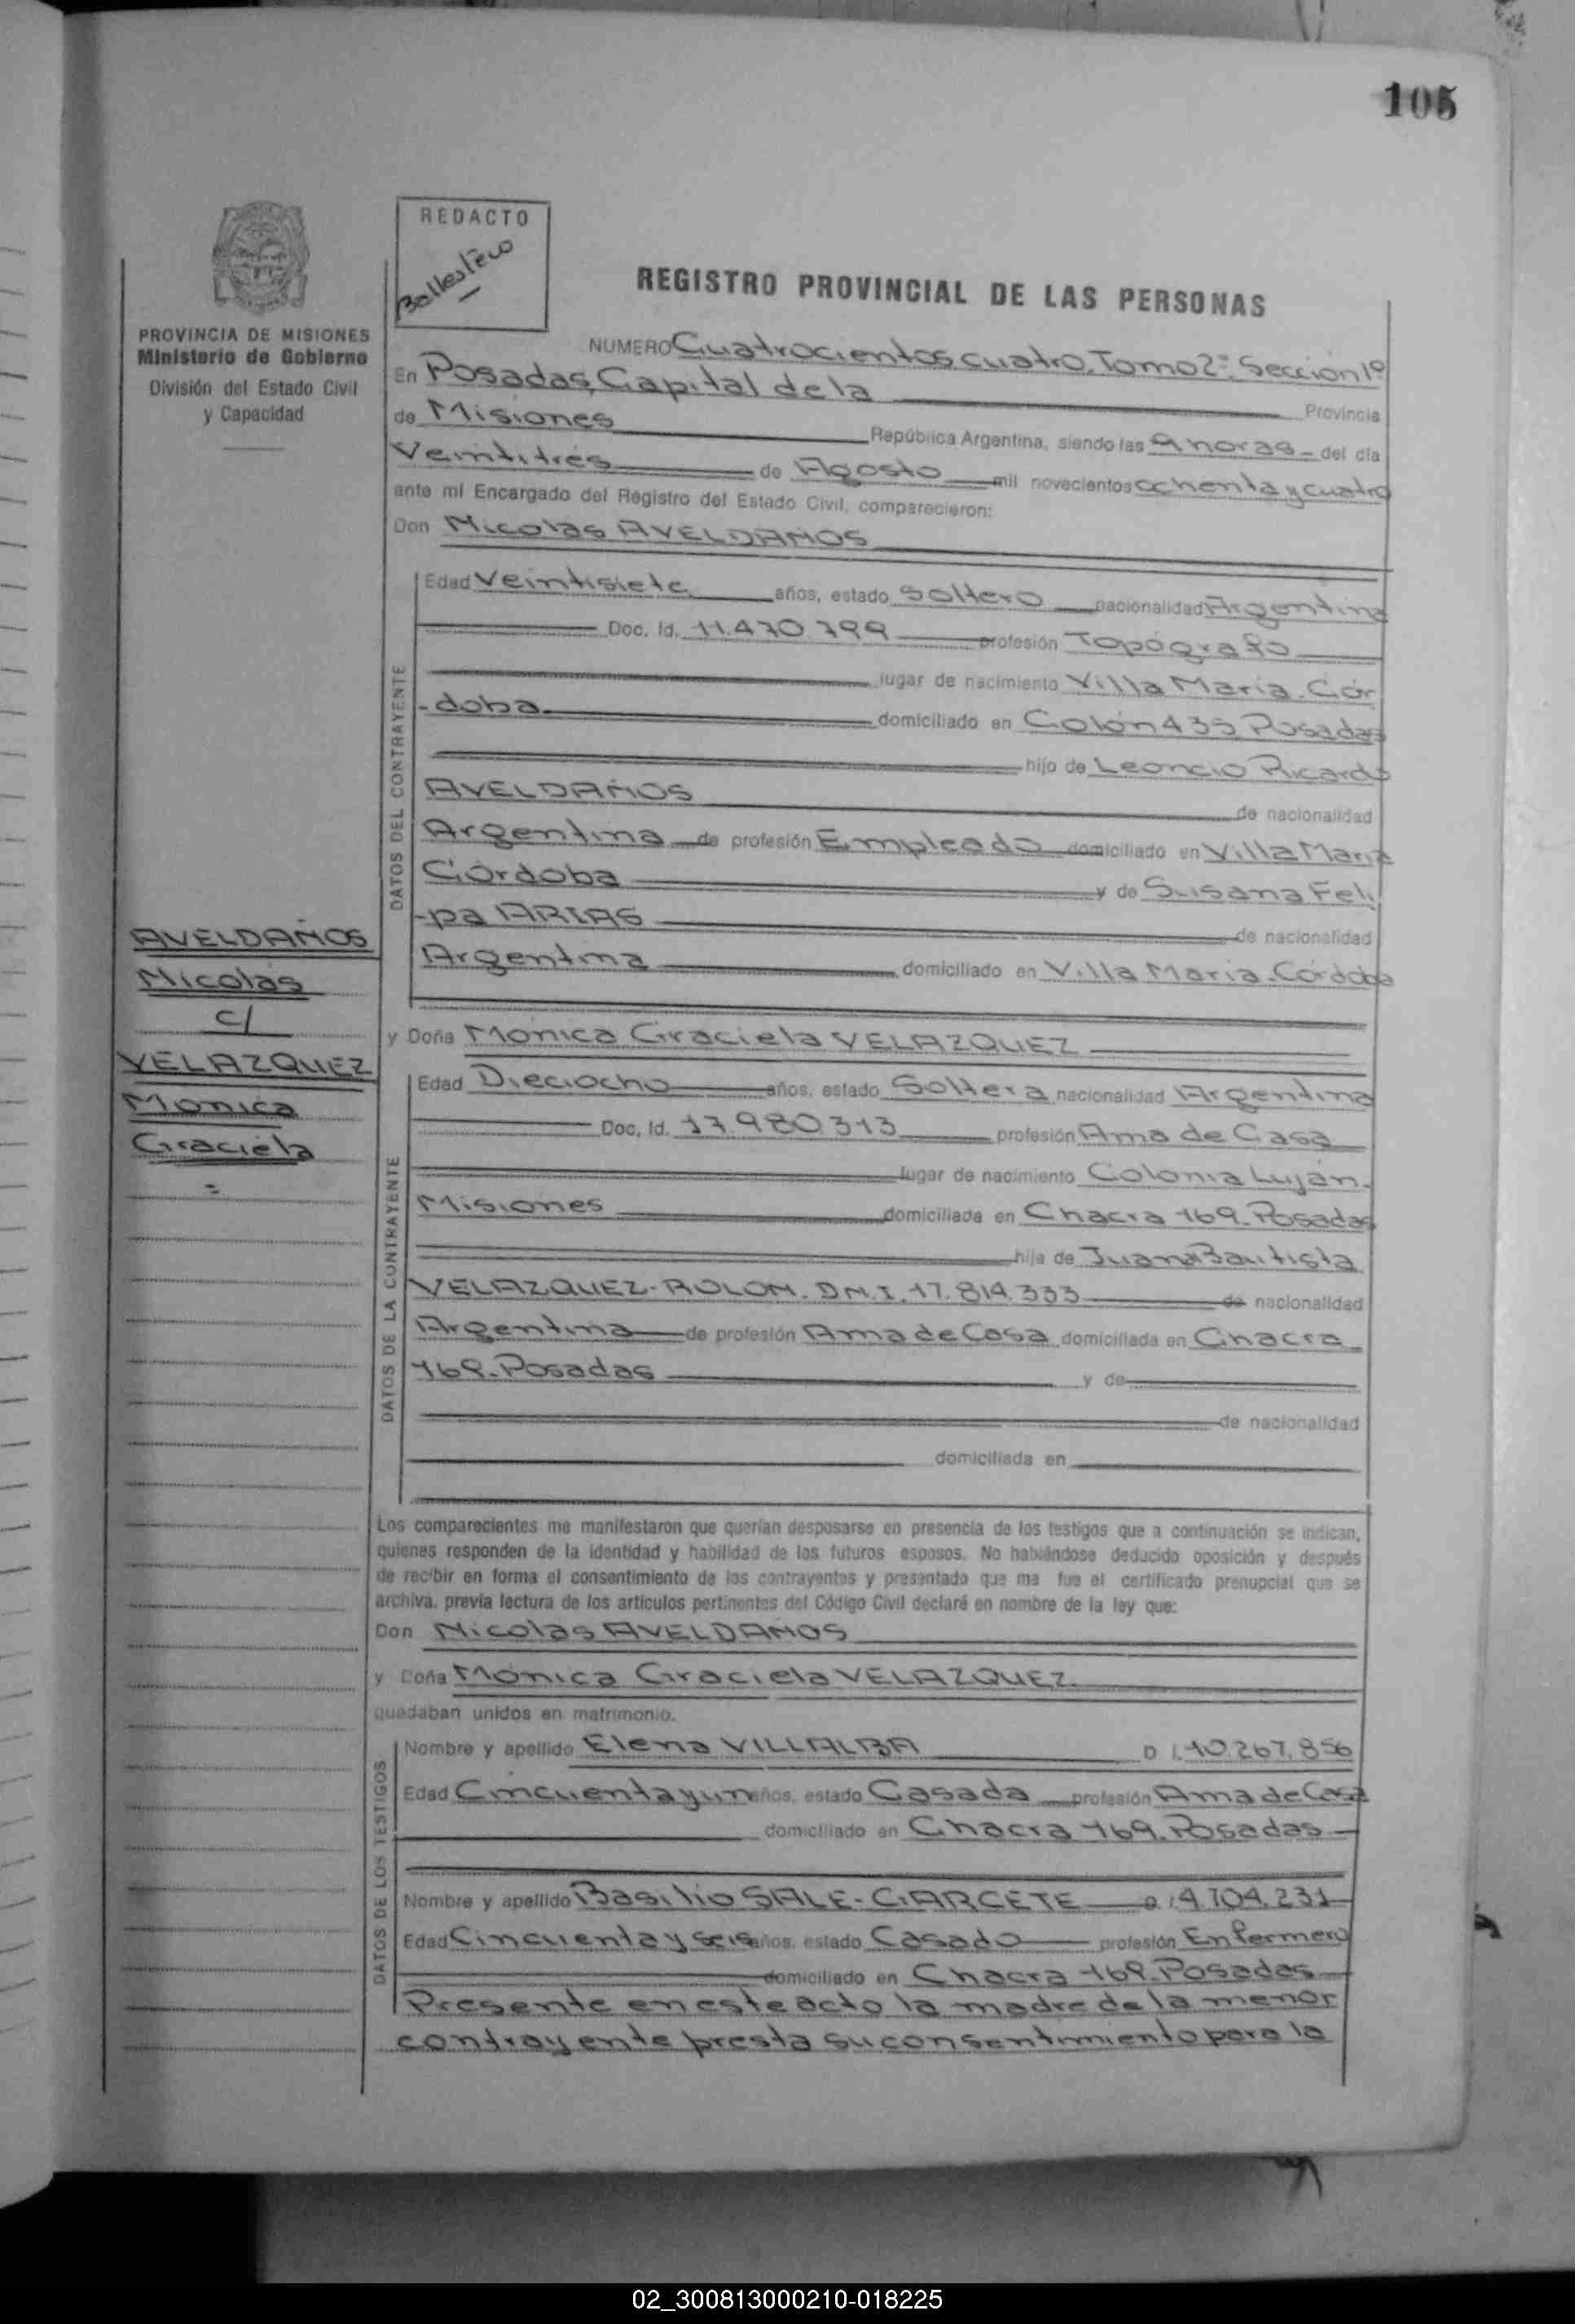 105
REDACTO
Ballestero
REGISTRO PROVINCIAL DE LAS PERSONAS
PROVINCIA DE MISIONES
Ministerio de Gobierno
División del Estado Civil
y Capacidad
NUMERO Cuatrocientos cuatro. Tomo 2º. Sección 1º
En Posadas, Capital de la Provincia
de Misiones República Argentina, siendo las 9 horas del día
Veintitrés de Agosto mil novecientos ochenta y cuatro
ante mí Encargado del Registro del Estado Civil, comparecieron:
Don Nicolás AVELDAÑOS
DATOS DEL CONTRAYENTE
Edad Veintisiete años, estado Soltero nacionalidad Argentina
Doc. Id. 11.470.799 profesión Topógrafo
lugar de nacimiento Villa María. Cór
-doba domiciliado en Colón 435 Posadas
hijo de Leoncio Ricardo
AVELDAÑOS de nacionalidad
Argentina de profesión Empleado domiciliado en Villa María
Córdoba y de Susana Feli
-pa ARIAS de nacionalidad
Argentina domiciliado en Villa María. Córdoba
AVELDAÑOS
Nicolás
c/
VELAZQUEZ
Mónica
Graciela
=
y Doña Mónica Graciela VELAZQUEZ
DATOS DE LA CONTRAYENTE
Edad Dieciocho años, estado Soltera nacionalidad Argentina
Doc. Id. 17.980.313 profesión Ama de Casa
lugar de nacimiento Colonia Luján.
Misiones domiciliada en Chacra 169. Posadas
hija de Juana Bautista
VELAZQUEZ-ROLON. D.N.I. 17.814.333 de nacionalidad
Argentina de profesión Ama de Casa domiciliada en Chacra
169. Posadas y de
de nacionalidad
domiciliada en
Los comparecientes me manifestaron que querían desposarse en presencia de los testigos que a continuación se indican,
quienes responden de la identidad y habilidad de los futuros esposos. No habiéndose deducido oposición y después
de recibir en forma el consentimiento de los contrayentes y presentado que me fue el certificado prenupcial que se
archiva, previa lectura de los artículos pertinentes del Código Civil declaré en nombre de la ley que:
Don Nicolás AVELDAÑOS
y Doña Mónica Graciela VELAZQUEZ
quedaban unidos en matrimonio.
DATOS DE LOS TESTIGOS
Nombre y apellido Elena VILLALBA D I. 10.267.856
Edad Cincuenta y un años, estado Casada profesión Ama de Casa
domiciliado en Chacra 169. Posadas
Nombre y apellido Basilio SALE-GARCETE D I 4.704.231
Edad Cincuenta y seis años, estado Casado profesión Enfermero
domiciliado en Chacra 169. Posadas
Presente en este acto la madre de la menor
contrayente presta su consentimiento para la
02_300813000210-018225